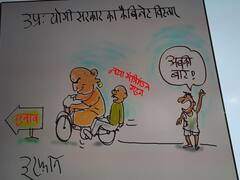 उप्र: योगी सरकार का कैबिनेट विस्तार
नया मंत्रिमंडल
अबकी
बार?
चुनाव
इरफान